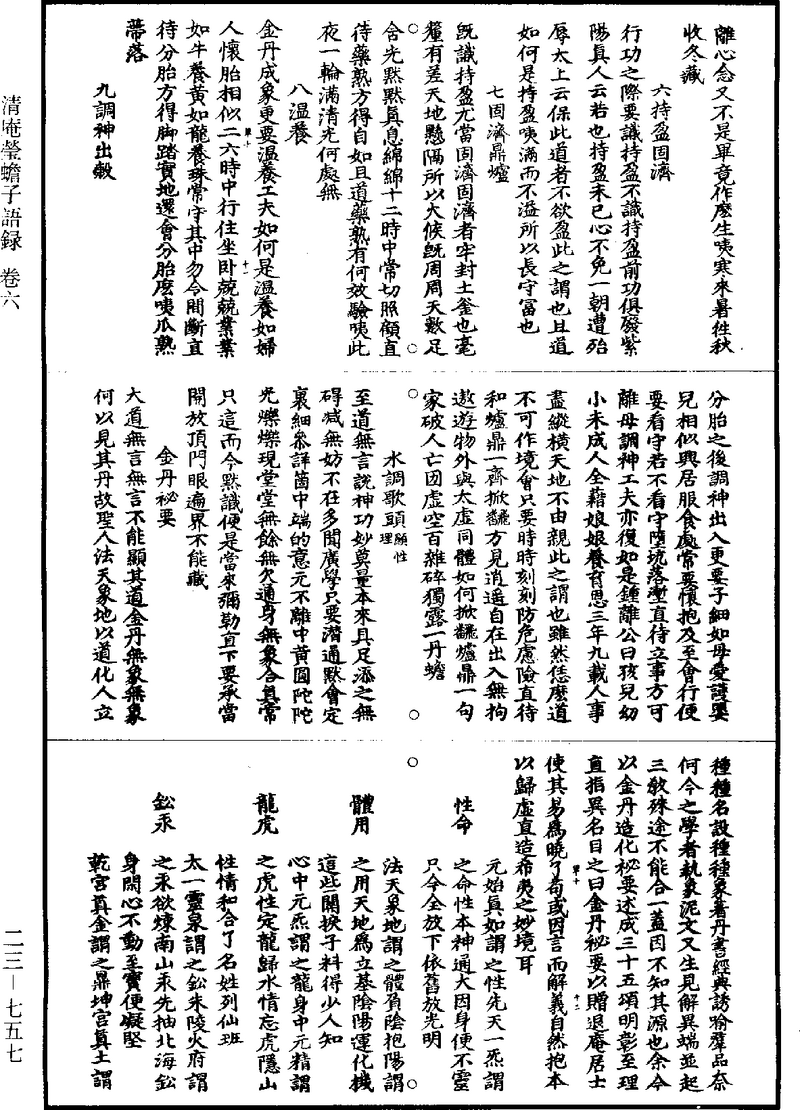 離心念又不是畢竟作麼生咦寒來暑徃秋
收冬藏
六持盈固濟
行功之際要識持盈不識持盈前功俱廢紫
陽真人云若也持盈未已心不免一朝遭殆
辱太上云保此道者不欲盈此之謂也且道
如何是持盈咦滿而不溢所以長守富也
七固濟鼎爐
既識持盈尤當固濟固濟者牢封土釜也毫
釐有差天地懸隔所以火候既周周天數足
含光默默真息綿綿十二時中常切照顧直
待藥熟方得自如且道藥熟有何效驗咦此
夜一輪滿清光何處無
八溫養
金丹成象更要溫養工夫如何是溫養如婦
人懷胎相似二六時中行住坐卧兢兢業業
如牛養黃如龍養珠常守其中勿令間斷直
待分胎方得脚踏實地還會分胎麼咦瓜熟
蒂落
九調神出殼
分胎之後調神出入更要子細如母愛護嬰
兒相似興居服食處常要懷抱及至會行便
要看守若不看守墮坑落壍直待立事方可
離母調神工夫亦復如是鍾離公曰孩兒幼
小未成人全藉娘娘養育恩三年九載人事
盡縱橫天地不由親此之謂也雖然恁麼道
不可作境會只要時時刻刻防危慮險直待
和爐鼎一齊掀飜方見逍遥自在出入無拘
遨遊物外與太虛同體如何掀飜爐鼎一句
家破人亡因虛空百雜碎獨露一丹蟾
水調歌頭 贈性理
至道無言說神功妙莫量本來具足添之無
碍减無妨不在多聞廣學只要潛通默會定
裏細參詳箇中端的意元不離中黃 圓陀陀
光爍爍現堂堂無餘無欠通身無象合真常
只這而今默識便是當來彌勒直下要承當
開放頂門眼遍界不能藏
金丹祕要
大道無言無言不能顯其道金丹無象無象
何以見其丹故聖人法天象地以道化人立
種種名設種種象著丹書經典誘喻羣品奈
何今之學者執象泥文又生見解異端並起
三教殊途不能合一蓋因不知其源也余今
以金丹造化祕要述成三十五頌明彰至理
直指異名目之曰金丹祕要以贈退庵居士
使其易為曉了苟或因言而解義自然抱本
以歸虛直造希夷之妙境耳
性命
元始真如謂之性先天一炁謂
之命性本神通大因身便不靈
只今全放下依舊放光明
體用
法天象地謂之體負陰抱陽謂
之用天地為立基陰陽運化機
這些關捩子料得少人知
龍虎
心中元炁謂之龍身中元精謂
之虎性定龍歸水情忘虎隱山
性情和合了名姓列仙班
鈆汞
太一靈泉謂之鈆朱陵火府謂
之汞欲煉南山汞先抽北海鈆
身閑心不動至寶便凝堅
乾宮真金謂之鼎坤宮真土謂
清庵瑩蟾子語録 卷六
二三—七五七